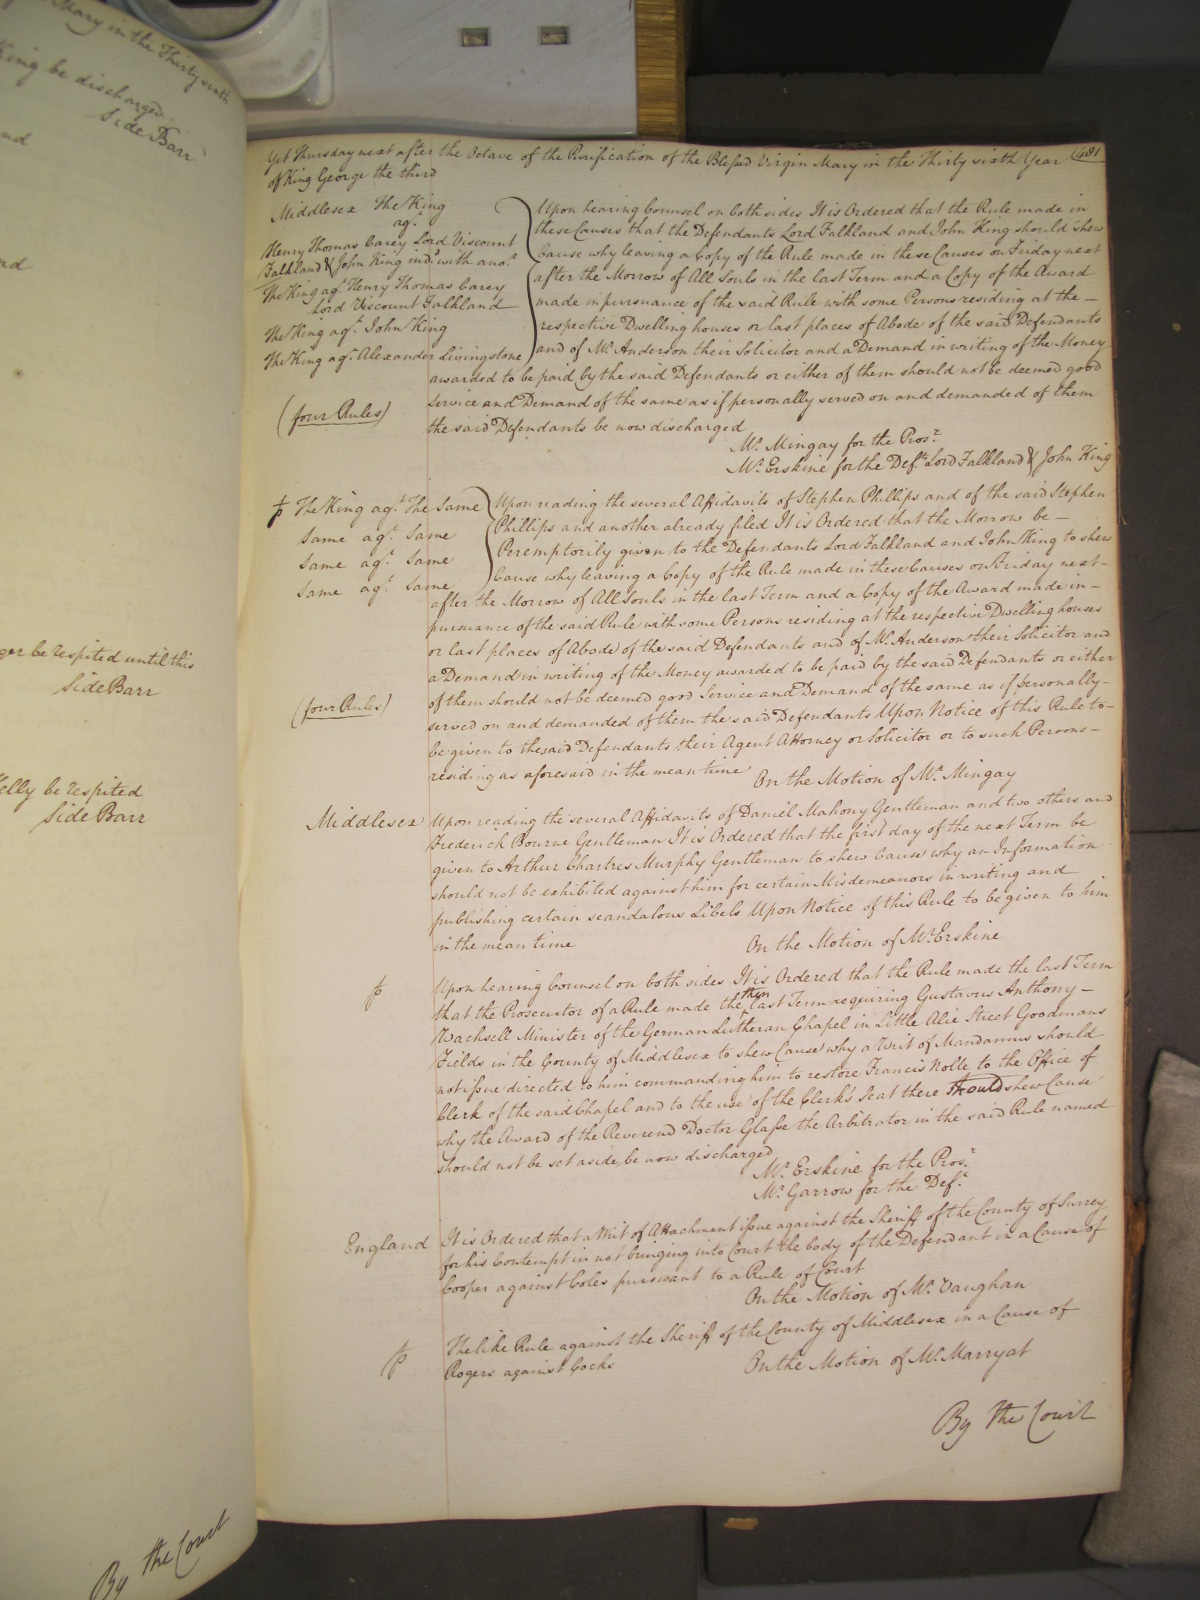 Mary in the Thirty sixth
King be discharged
Side Barr
ger be respited until this
Side Barr
elly be respited
Side Barr
By the Court
Yet Thursday next after the Octave of the Purification of the Blessed Virgin Mary in the Thirty sixth Year 481
of King George the third
Middlesex The King
agt
Henry Thomas Carey Lord Viscount
Falkland & John King indd with anor
The King agt Henry Thomas Carey
Lord Viscount Falkland
The King agt John King
The King agt Alexander Livingstone
Upon hearing Counsel on both sides It is Ordered that the Rule made in
these Causes that the Defendants Lord Falkland and John King should shew
Cause why leaving a Copy of the Rule made in these Causes on Friday next
after the Morrow of All Souls in the last Term and a Copy of the Award
made in pursuance of the said Rule with some Persons residing at the –
respective Dwelling houses or last places of Abode of the said Defendants
and of Mr Anderson their Solicitor and a Demand in writing of the Money
awarded to be paid by the said Defendants or either of them should not be deemed good
(four Rules)
Service and Demand of the same as if personally served on and demanded of them
the said Defendants be now discharged
Mr Mingay for the Prosr
Mr Erskine for the Defts Lord Falkland & John King
The King agt The Same
Same agt Same
Same agt Same
Same agt Same
Upon reading the several Affidavits of Stephen Phillips and of the said Stephen
Phillips and another already filed It is Ordered that the Morrow be –
Peremptorily given to the Defendants Lord Falkland and John King to shew
Cause why leaving a Copy of the Rule made in these Causes on Friday next –
after the Morrow of All Souls in the last Term and a Copy of the Award made in –
pursuance of the said Rule with some Persons residing at the respective Dwelling houses
or last places of Abode of the said Defendants and of Mr Anderson their Solicitor and
a Demand in writing of the Money awarded to be paid by the said Defendants or either
(four Rules)
of them should not be deemed good Service and Demand of the same as if personally –
served on and demanded of them the said Defendants Upon Notice of this Rule to –
be given to the said Defendants their Agent Attorney or Solicitor or to such Persons –
residing as aforesaid in the mean time
On the Motion of Mr Mingay
Middlesex
Upon reading the several Affidavits of Daniel Mahony Gentleman and two others and
Frederick Bourne Gentleman It is Ordered that the first day of the next Term be
given to Arthur Chartres Murphy Gentleman to shew Cause why an Information
should not be exhibited against him for certain Misdemeanors in writing and
publishing certain scandalous Libels Upon Notice of this Rule to be given to him
in the mean time
On the Motion of Mr Erskine
Upon hearing Counsel on both sides It is Ordered that the Rule made the last Term
that the Prosecutor of a Rule made the then last Term requiring Gustavus Anthony –
Wachsell Minister of the German Lutheran Chapel in Little Alie Street Goodmans
Fields in the County of Middlesex to shew Cause why a Writ of Mandamus should
not issue directed to him commanding him to restore Francis Nolle to the Office of
Clerk of the said Chapel and to the use of the Clerk's Seat there should shew Cause
why the Award of the Reverend Doctor Glasse the Arbitrator in the said Rule named
should not be set aside, be now discharged
Mr Erskine for the Prosr
Mr Garrow for the Deft
England
It is Ordered that a Writ of Attachment issue against the Sheriff of the County of Surrey
for his Contempt in not bringing into Court the body of the Defendant in a Cause of
Cooper against Coles pursuant to a Rule of Court
On the Motion of Mr Vaughan
The like Rule against the Sheriff of the County of Middlesex in a Cause of
Rogers against Cocks
On the Motion of Mr Marryat
By the Court